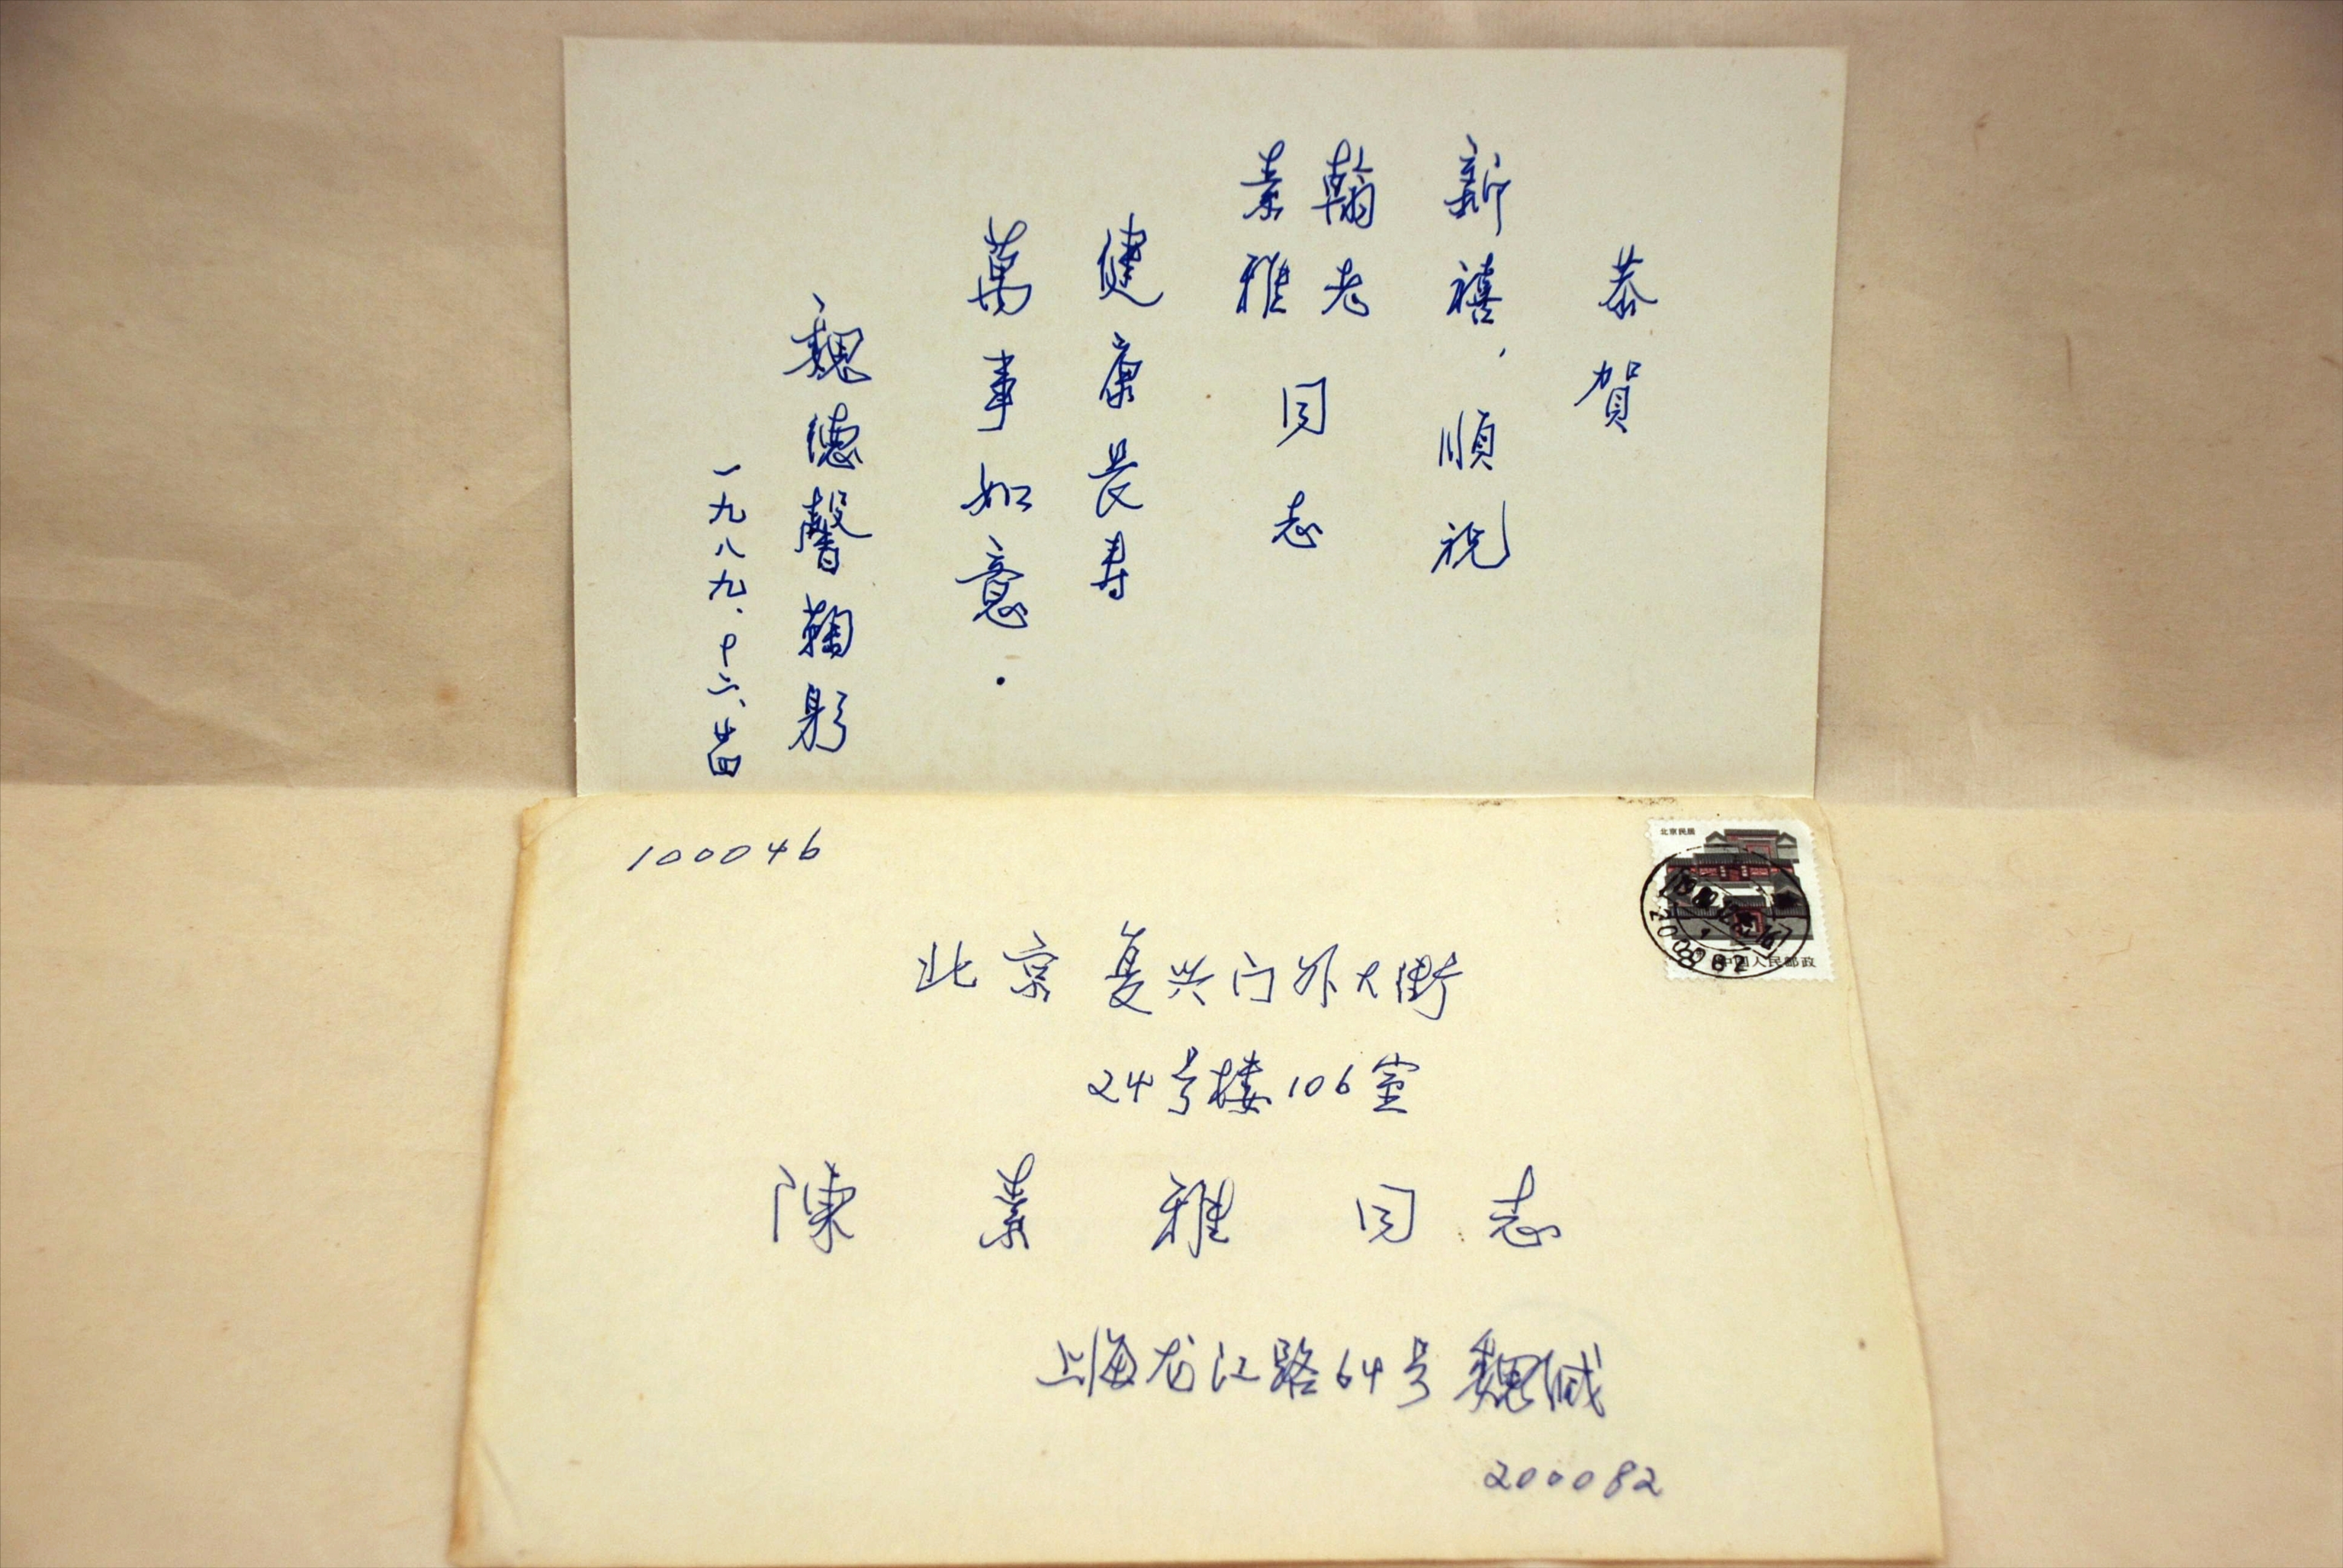 恭賀
新禧，順祝
翰老
素雅
同志
健康長寿
萬事如意．
魏德馨鞠躬
一九八九．十二、廿四
100046
北京民居
中国人民邮政
200082
北京复兴门外大街
24号楼106室
陳素雅同志
上海龙江路64号魏缄
200082